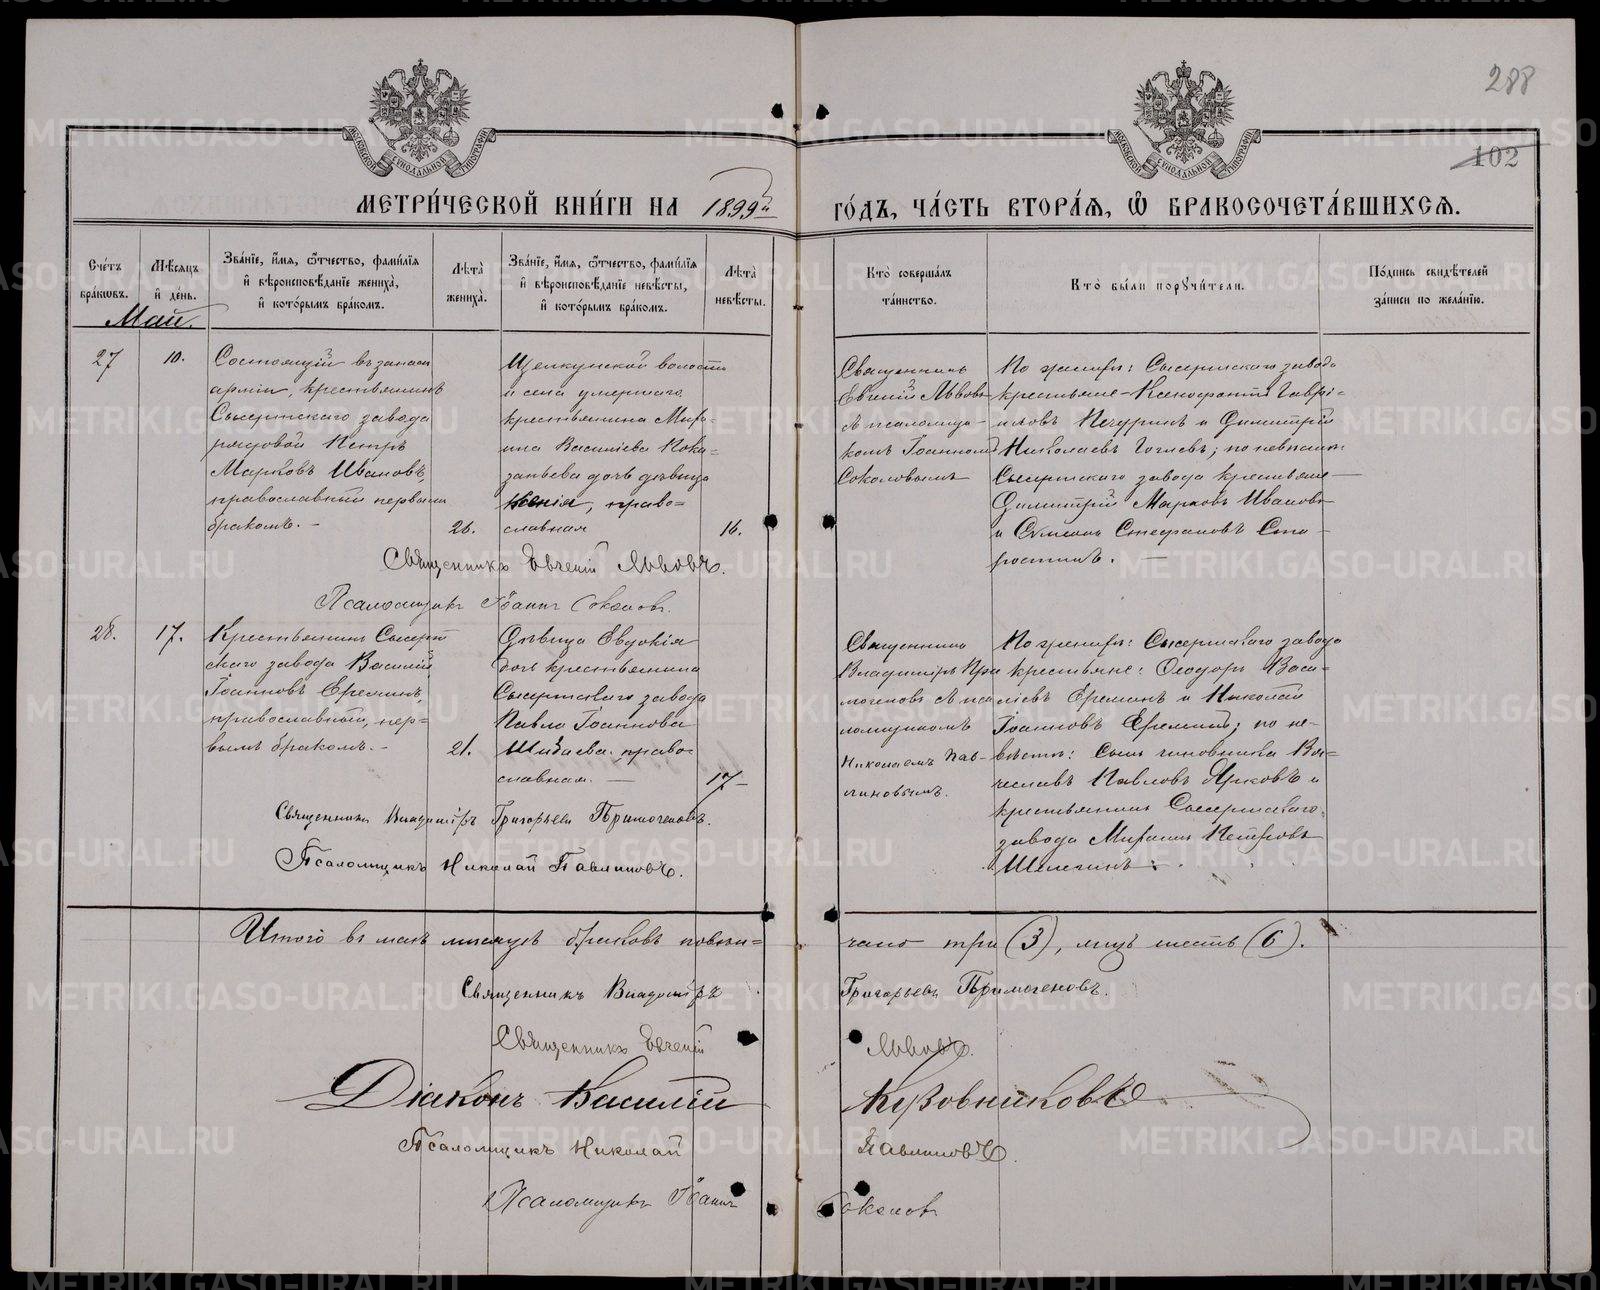 288
102
МОСКОВСКОЙ СѴНОДАЛЬНОЙ ТИПОГРАФІИ
МОСКОВСКОЙ СѴНОДАЛЬНОЙ ТИПОГРАФІИ
МЕТРИ́ЧЕСКОЙ КНИ́ГИ НА 1899й ГО́ДЪ, ЧА́СТЬ ВТОРА́Я, Ѡ БРАКОСОЧЕТА́ВШИХСЯ.
Сче́тъ бра́кѡвъ.
Мѣ́сяцъ и де́нь.
Зва́нїе, и́мя, ѻ́тчество, фами́лїя и вѣроисповѣ́данїе жениха̀, и кото́рымъ бра́комъ.
Лѣта̀ жениха̀.
Зва́нїе, и́мя, ѻ́тчество, фами́лїя и вѣроисповѣ́данїе невѣ́сты, и кото́рымъ бра́комъ.
Лѣта̀ невѣ́сты.
Кто̀ соверша́лъ та́инство.
Кто̀ бы́ли порꙋчи́тели.
По́дпись свидѣ́телей за́писи по жела́нїю.
Май.
27
10.
Состоящій въ запасѣ
арміи, крестьянинъ
Сысертскаго завода
рядовой Петръ
Марковъ Ивановъ,
православный первымъ
бракомъ. -
26.
Щелкунской волости
и села умершаго
крестьянина Миро-
на Василіева Пока-
заньева дочь дѣвица
Ксенія, право-
славная
16.
Священникъ
Евгеній Львовъ
съ псаломщи-
комъ Іоанномъ
Соколовымъ
По женихѣ: Сысертскаго завода
крестьяне - Ксенофонтъ Гаврі-
иловъ Печуринъ и Димитрій
Николаевъ; по невѣстѣ:
Сысертскаго завода крестьяне -
Димитрій Марковъ Ивановъ
и Сѵмеонъ Стефановъ Ста-
ростинъ. -
Священникъ Евгеній Львовъ.
Псаломщикъ Іоаннъ Соколовъ.
28.
17.
Крестьянинъ Сысерт-
скаго завода Василій
Іоанновъ Ереминъ,
православный, пер-
вымъ бракомъ. -
21.
Дѣвица Евдокія
дочь крестьянина
Сысертскаго завода
Павла Іоаннова
Шибаева, право-
славная. -
17-
Священникъ
Владиміръ При
могеновъ съ пса
ломщикомъ
Николаемъ Пав-
линовымъ.
По женихѣ: Сысертскаго завода
крестьяне: Ѳеодоръ Васи-
ліевъ Ереминъ и Николай
Іоанновъ Ереминъ; по не-
вѣстѣ: Сынъ чиновника Вя-
чеславъ Павловъ Ярковъ и
крестьянинъ Сысертскаго
завода Миронъ Петровъ
Шалегинъ.
Священникъ Владиміръ Григорьевъ Примогеновъ.
Псаломщикъ Николай Павлиновъ.
Итого въ маѣ мѣсяцѣ браковъ повѣн- чано три (3), лицъ шесть (6).
Священникъ Владиміръ Григорьевъ Примогеновъ.
Священникъ Евгеній Львовъ.
Діаконъ Василій Кузовниковъ
Псаломщикъ Николай Павлиновъ.
Псаломщикъ Іоаннъ Соколовъ
METRIKI.GASO-URAL.RU